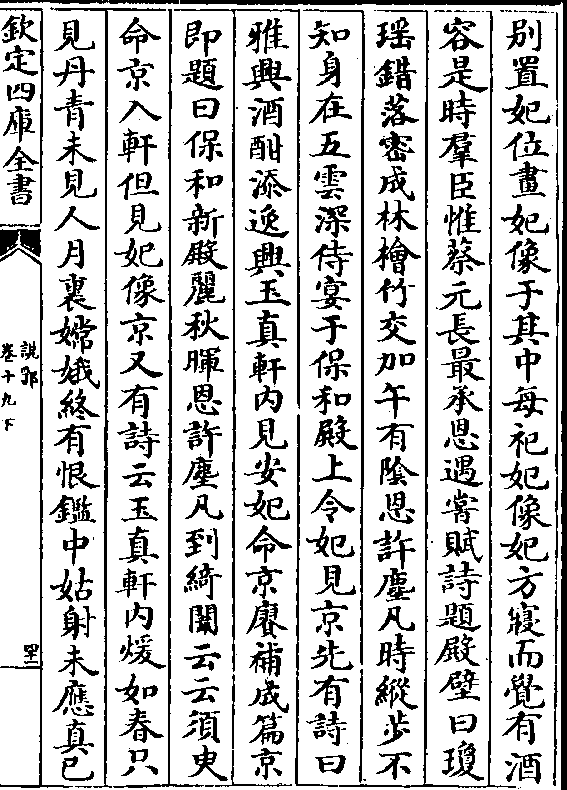 别置妃位畫妃像于其中每祀妃像妃方寢而覺有酒
容是時羣臣惟蔡元長最承恩遇嘗賦詩題殿壁曰瓊
瑶錯落密成林檜竹交加午有隂恩許塵凡時縱步不
知身在五雲深侍宴于保和殿上令妃見京先有詩曰
雅興酒酣添逸興玉真軒内見安妃命京賡補成篇京
即題曰保和新殿麗秋暉恩許塵凡到綺闈云云須臾
命京入軒但見妃像京又有詩云玉真軒内煖如春只
見丹青未見人月裏嫦娥終有恨鑑中姑射未應真已
欽定四庫全書
說郛
卷十九下